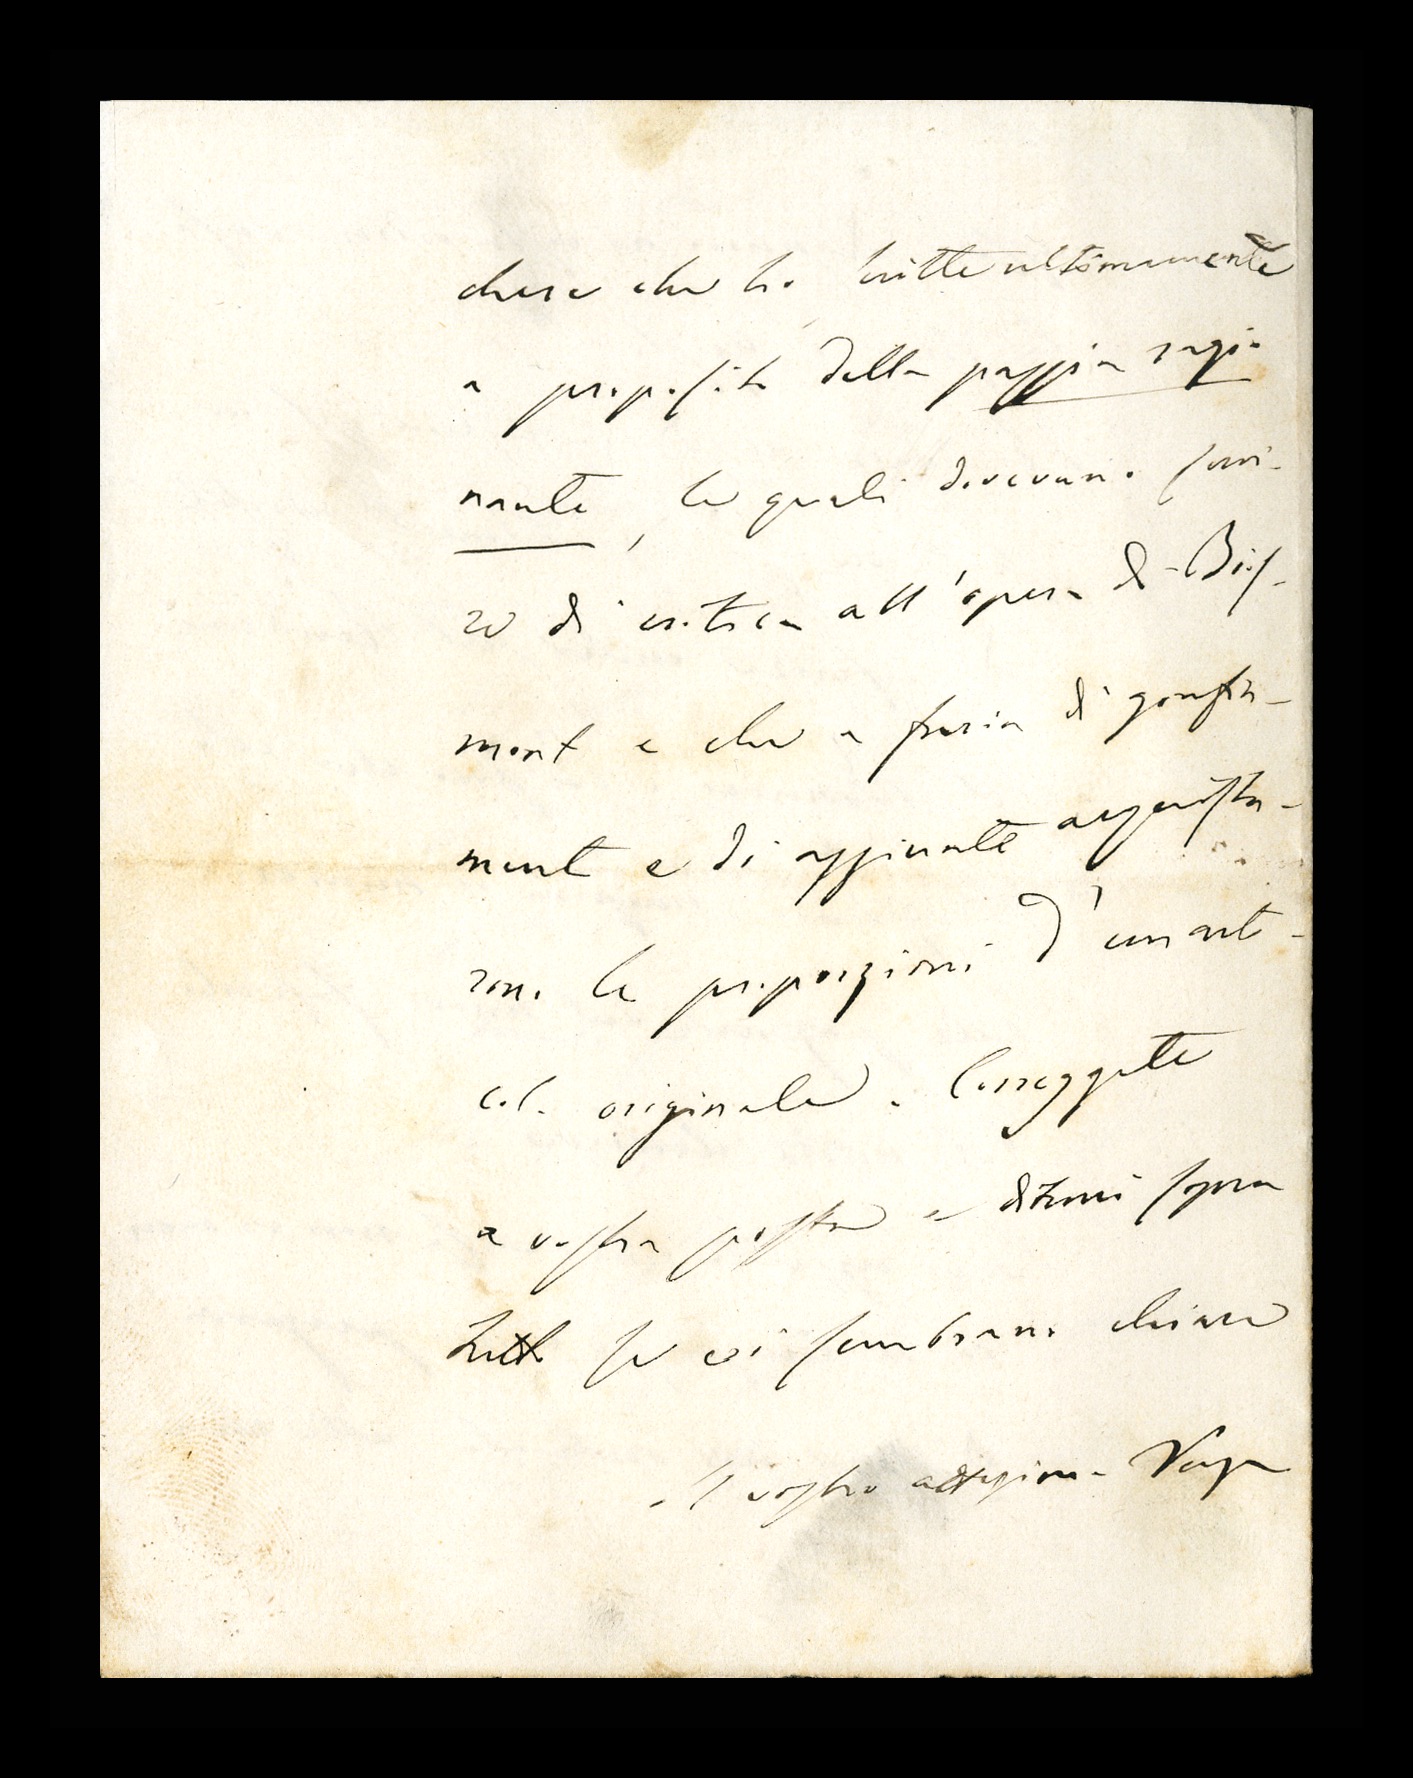 che ho scritte ultimamente
a proposito della pazzia ragio
nante, le quali dovevano servi-
re di critica all'opera di Bris-
mont e che a furia di gonfia-
ment e di aggiunte acquista-
rono le proporzioni d'un arti-
colo originale. Correggete
a vostra posta e ditemi sopra
tutto se vi sembrano chiare
il vostro affezion.